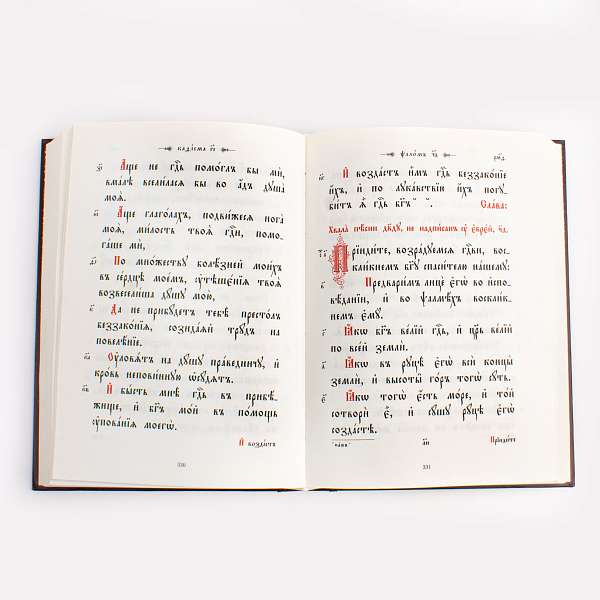 каѳі́сма г҃і
А҆́ще не гдⷭ҇ь помо́глъ бы мѝ,
вма́лѣ всели́лася бы во а҆́дъ дꙋша̀
моѧ̀.
А҆́ще глаго́лахъ, подви́жесѧ нога̀
моѧ̀, ми́лость твоѧ̀ гдⷭ҇и, помо-
га́ше мѝ,
По мно́жествꙋ болѣ́зней мои́хъ
въ се́рдцѣ мое́мъ, ᲂу҆тѣшє́нїѧ твоѧ̑
возвесели́ша дꙋ́шꙋ мою̀,
Да не прибꙋ́детъ тебѣ̀ престо́лъ
беззако́нїѧ, созида́ѧй трꙋ́дъ на
повелѣ́нїе.
Оу҆ловѧ́тъ на дꙋ́шꙋ првⷣничꙋ, и҆
кро́вь непови́ннꙋю ѡ҆сꙋ́дѧтъ.
И҆ бы́сть мнѣ̀ гдⷭ҇ь въ прибѣ́-
жище, и҆ бг҃ъ мо́й въ по́мощь
ᲂу҆пова́нїѧ моегѡ̀.
И҆ возда́стъ
330
ѱало́мъ
И҆ возда́стъ и҆̀мъ гдⷭ҇ь беззако́нїе
и҆́хъ, и҆ по лꙋка́вствїю и҆́хъ погꙋ-
би́тъ ѧ҆̀ гдⷭ҇ь бг҃ъ
Сла́ва:
Хвала̀ пѣ́сни дв҃дꙋ, не надпи́санъ ᲂу҆ є҆врє́й,
Прїиди́те, возра́дꙋемсѧ гдⷭ҇ви, вос-
кли́кнемъ бг҃ꙋ спаси́телю на́шемꙋ:
Предвари́мъ лицѐ є҆гѡ̀ во и҆спо-
вѣ́данїи, и҆ во ѱалмѣ́хъ воскли́к-
немъ є҆мꙋ̀.
Ꙗ҆́кѡ бг҃ъ ве́лїй гдⷭ҇ь, и҆ цр҃ь ве́лїй
по все́й землѝ.
Ꙗ҆́кѡ въ рꙋцѣ̀ є҆гѡ̀ всѝ концы̀
землѝ, и҆ высоты̑ го́ръ тогѡ̀ сꙋ́ть.
Ꙗ҆́кѡ тогѡ̀ є҆́сть мо́ре, и҆ то́й
сотворѝ є҆̀, и҆ сꙋ́шꙋ рꙋ́цѣ є҆гѡ̀
созда́стѣ.
Прїиди́те
331